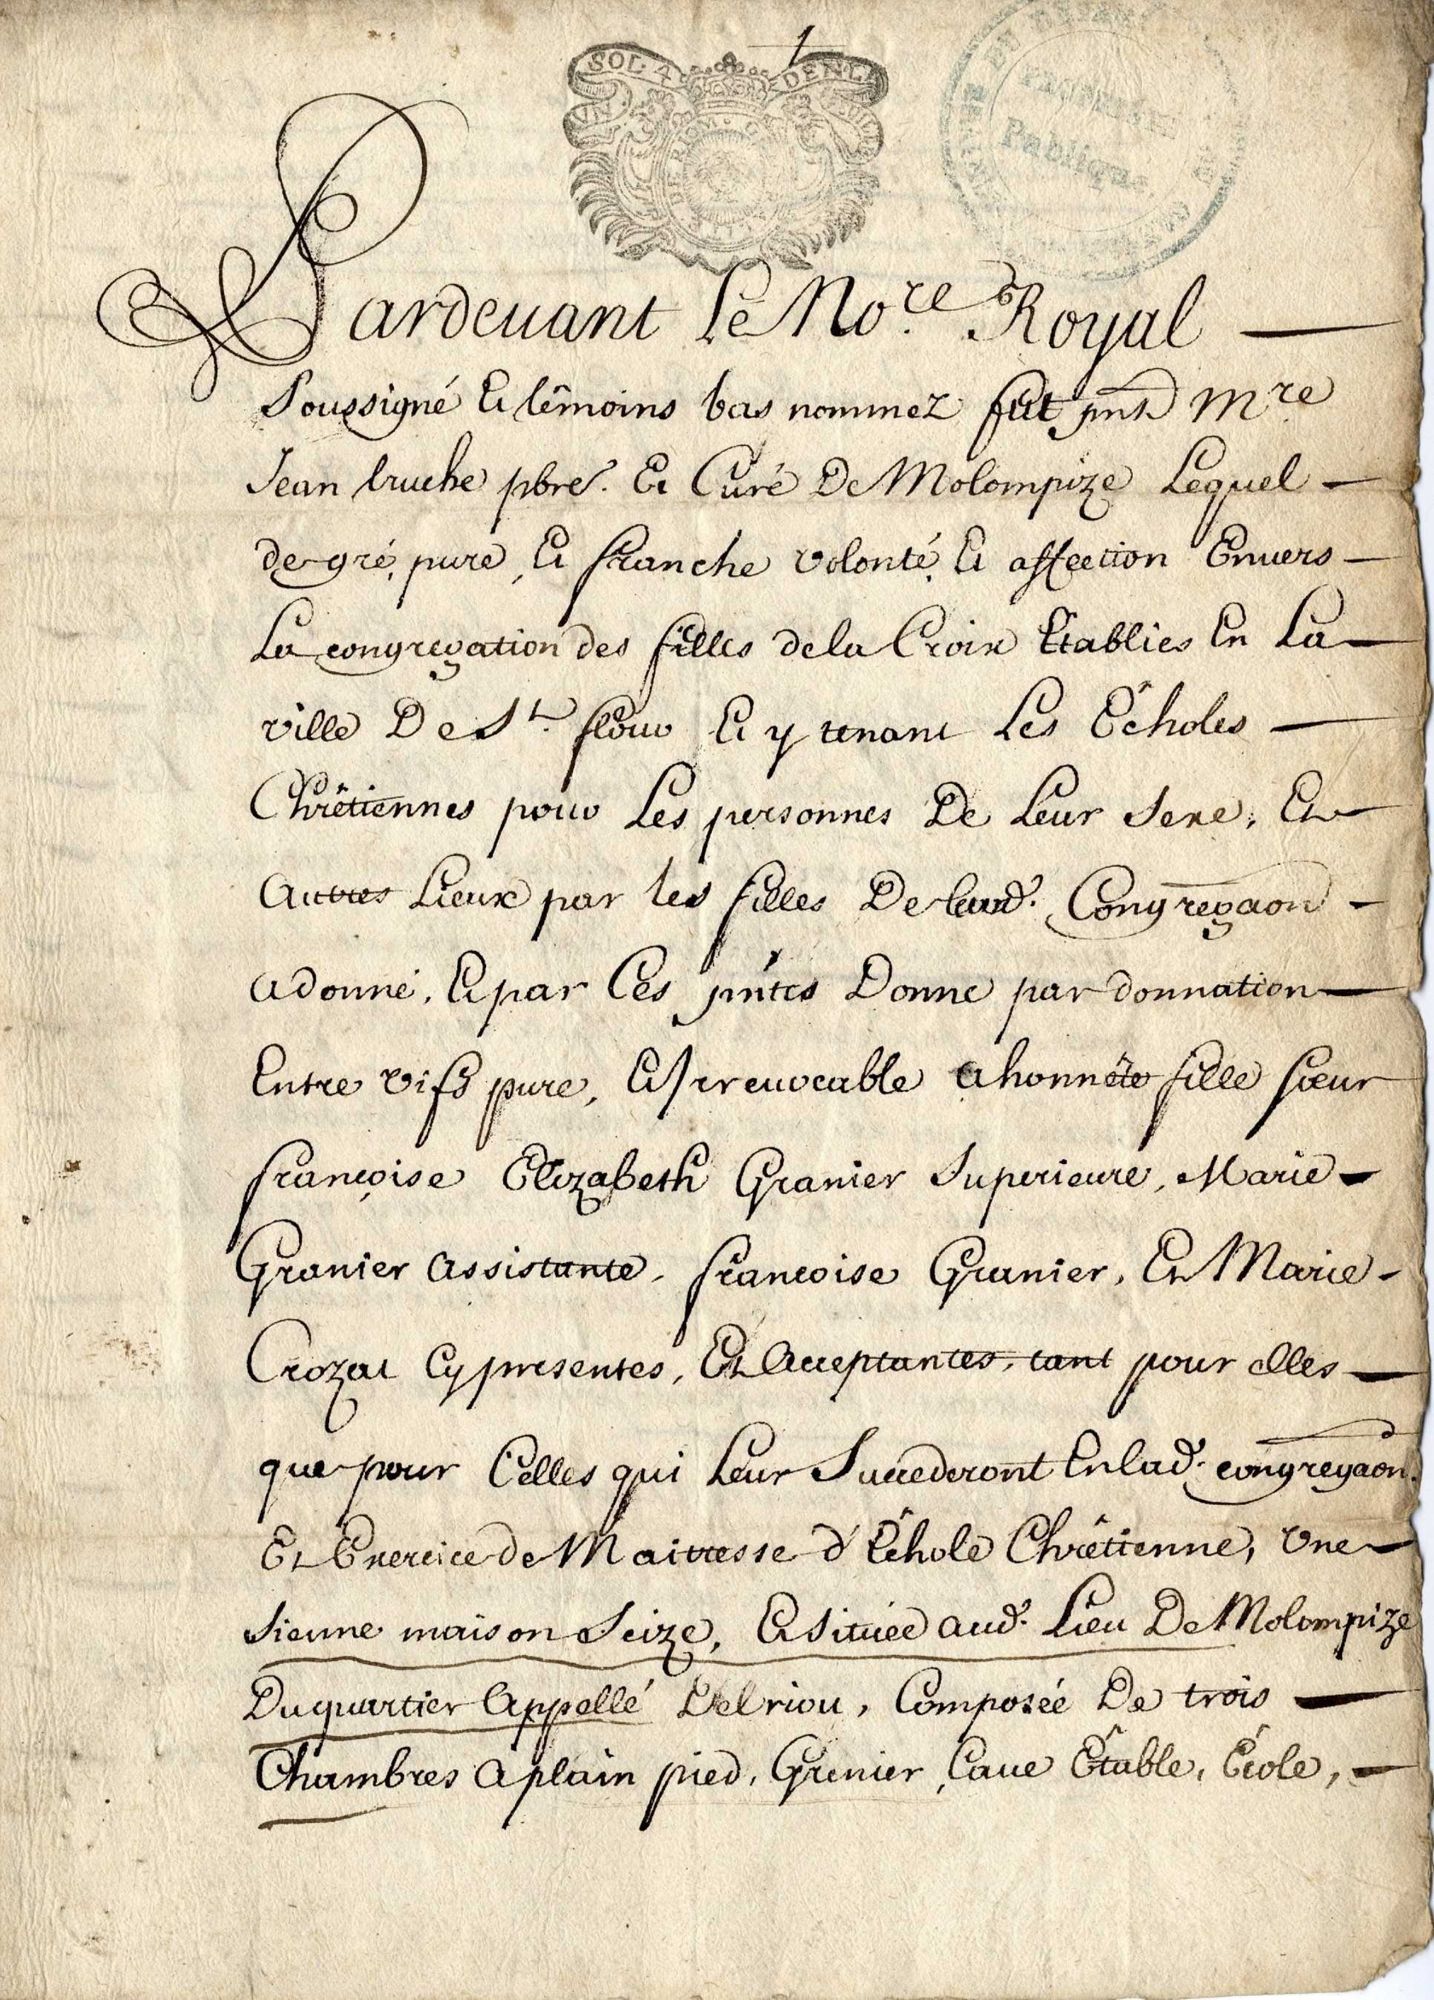 1
UN SOL 4 DEN LA
PROPRIÉTÉ
Publique
Pardeuant Le No.re Royal
Soussigné Et têmoins bas nommez fut pnt Mre
Jean bruche pbre. Et Curé De Molompize Lequel
de gré, pure, Et franche volonté, Et affection Enuers
La congregation des filles de la Croix Etablies En La
ville De St. flour Et y tenant Les Écholes
Chrêtiennes pour Les personnes De Leur Sexe, Et
Autres Lieux par les filles De Congregaon
a donné, Et par Ces pntes Donne par donnation
Entre vifs pure, Et Irreuocable a honnête fille sœur
françoise Elizabeth Granier Superieure, Marie
Granier assistante, françoise Granier, Et Marie
Crozat Cy presentes, Et Acceptantes, tant pour elles
que pour Celles qui Leur Succederont En lad. congregaon.
Et Exercice de Maitresse d'Échole Chrêtienne, Vne
sienne maison Seize, Et située aud. Lieu De Molompize
Du quartier Appellé Delriou, Composée De trois
Chambres a plain pied, Grenier, Caue Étable, École,